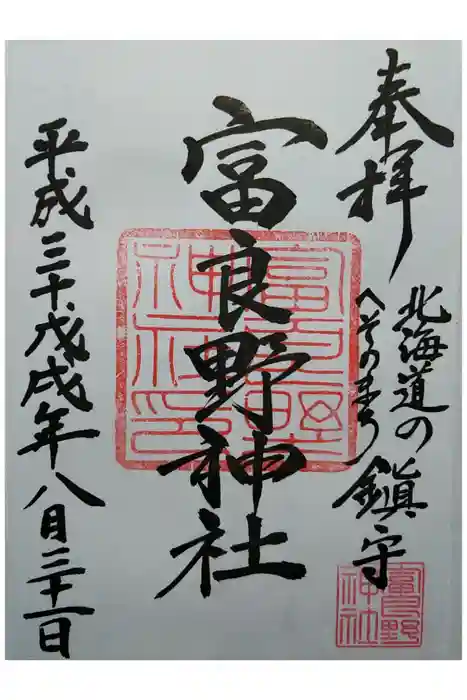 奉拝
北海道の
へそのまち
鎮守
富良野神社
平成三十戊戌年八月三十一日
富良野
神社印
富良野
神社